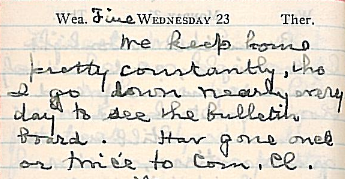 Wea. Fine WEDNESDAY 23 Ther.
We keep home
pretty constantly, tho
I go down nearly every
day to see the bulletin
board. Hav gone once
or twice to Com. Cl.